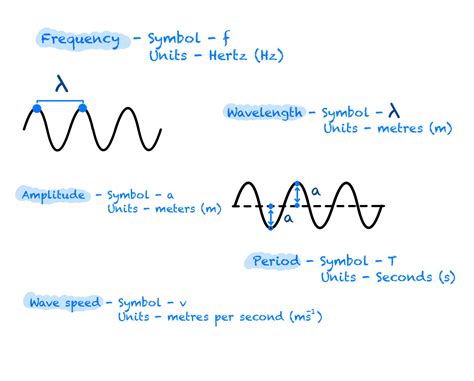 Frequency - Symbol - f
Units - Hertz (Hz)
λ
Wavelength - Symbol - λ
Units - metres (m)
Amplitude - Symbol - a
Units - meters (m)
a
a
Period - Symbol - T
Units - Seconds (s)
Wave speed - Symbol - v
Units - metres per second (ms⁻¹)